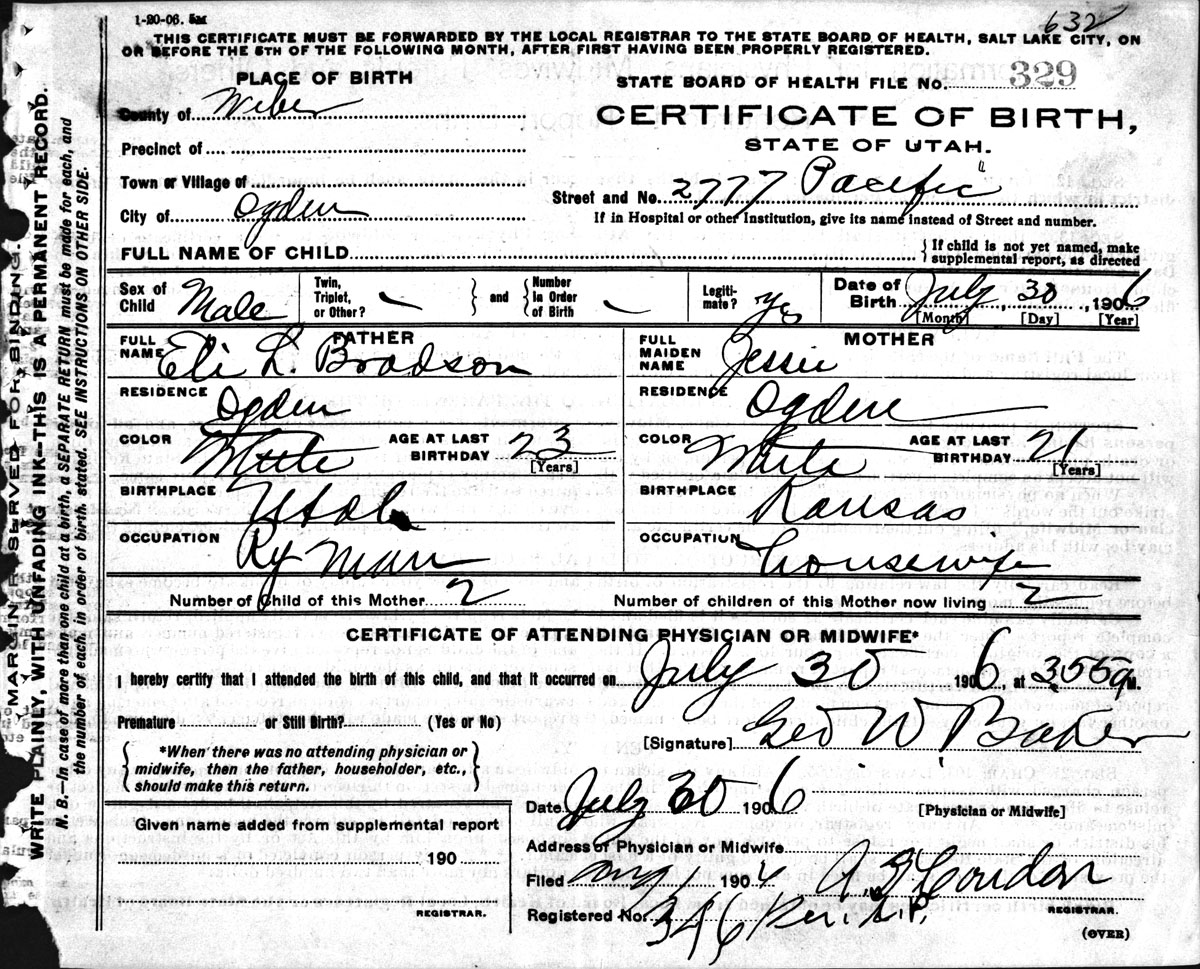 1-20-06. 5m
632
THIS CERTIFICATE MUST BE FORWARDED BY THE LOCAL REGISTRAR TO THE STATE BOARD OF HEALTH, SALT LAKE CITY, ON
OR BEFORE THE 5TH OF THE FOLLOWING MONTH, AFTER FIRST HAVING BEEN PROPERLY REGISTERED.
PLACE OF BIRTH
STATE BOARD OF HEALTH FILE No. 329
County of Weber
CERTIFICATE OF BIRTH,
Precinct of
STATE OF UTAH.
Town or Village of
Street and No. 2777 Pacific
City of Ogden
If in Hospital or other Institution, give its name instead of Street and number.
FULL NAME OF CHILD
If child is not yet named, make
supplemental report, as directed
Sex of Child Male
Twin, Triplet, or Other?
and
Number in Order of Birth
Legiti-mate? yes
Date of Birth July 30, 1906
[Month] [Day] [Year]
FATHER
FULL NAME Eli L. Bradson
RESIDENCE Ogden
COLOR White AGE AT LAST BIRTHDAY 23
[Years]
BIRTHPLACE Utah
OCCUPATION Ry Man
MOTHER
FULL MAIDEN NAME Jessie
RESIDENCE Ogden
COLOR White AGE AT LAST BIRTHDAY 21
[Years]
BIRTHPLACE Kansas
OCCUPATION Housewife
Number of Child of this Mother 2 Number of children of this Mother now living 2
CERTIFICATE OF ATTENDING PHYSICIAN OR MIDWIFE*
I hereby certify that I attended the birth of this child, and that it occurred on July 30 1906, at 3:55 a M.
Premature or Still Birth? (Yes or No)
[Signature] Geo W Baker
*When there was no attending physician or
midwife, then the father, householder, etc.,
should make this return.
Date July 30 1906 [Physician or Midwife]
Given name added from supplemental report
190
REGISTRAR.
Address of Physician or Midwife
Filed Aug 190
REGISTRAR.
Registered No. 346
(OVER)
MARGIN RESERVED FOR BINDING.
WRITE PLAINLY, WITH UNFADING INK—THIS IS A PERMANENT RECORD.
N. B.—In case of more than one child at a birth, a SEPARATE RETURN must be made for each, and
the number of each, in order of birth, stated. SEE INSTRUCTIONS ON OTHER SIDE.